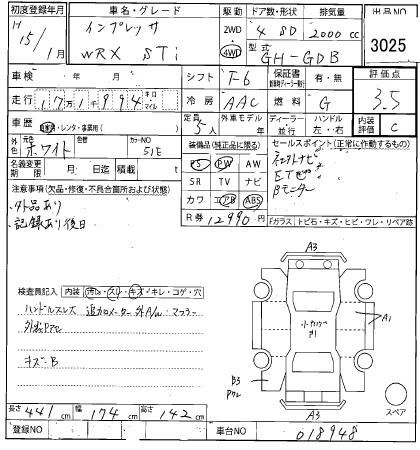 初度登録年月 車名・グレード 駆動 ドア数・形状 排気量 出品NO
H15年/1月 インプレッサ 2WD 4 SD 2000 cc
WRX STi 4WD 型式 GH-GDB 3025
車検 年 月 シフト F6 保証書 有・無 評価点
走行 17万1千994 キロ マイル 冷房 AAC 燃料 G 3.5
車歴 自家用・レンタ・事業用( ) 定員 5人 外車モデル 年 ディーラー 並行 ハンドル 左・右 内装評価 C
外色 元色 ホワイト 色替 カラーNO 51E
装備品(純正品に限る) セールスポイント(正常に作動するもの)
名義変更期限 月 日迄 積載 t
PS PW AW
SR TV ナビ
カワ エアB ABS
R券 12990 円
Bモニター
注意事項(欠品・修復・不具合箇所および状態)
・外品あり
・記録あり後日
Fガラス トビ石・キズ・ヒビ・ワレ・リペア跡
検査員記入 内装 汚れ・スレ・キズ・キレ・コゲ・穴
ハンドルスレ 追加メーター 外A/W・マフラー
キズ・B
A3
A1
B3
A3
スペア
長さ 441 cm 幅 174 cm 高さ 142 cm
登録NO 車台NO 018948